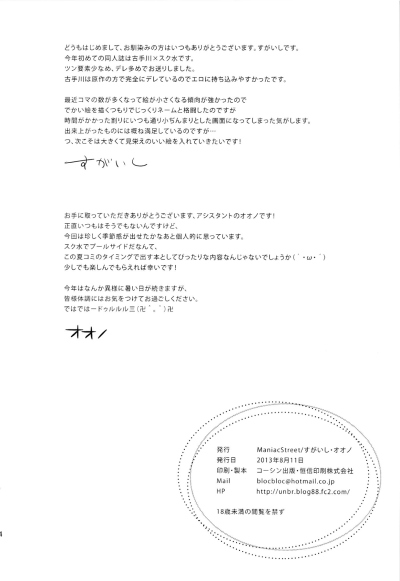 どうもはじめまして、お馴染みの方はいつもありがとうございます。すがいしです。
今年初めての同人誌は古手川×スク水です。
ツン要素少なめ、デレ多めでお送りしました。
古手川は原作の方で完全にデレているのでエロに持ち込みやすかったです。
最近コマの数が多くなって絵が小さくなる傾向が強かったので
でかい絵を描くつもりでじっくりネームと格闘したのですが
時間がかかった割りにいつも通り小ぢんまりとした画面になってしまった気がします。
出来上がったものには概ね満足しているのですが…
つ、次こそは大きくて見栄えのいい絵を入れていきたいです!
すがいし
お手に取っていただきありがとうございます、アシスタントのオオノです!
正直いつもはそうでもないんですけど、
今回は珍しく季節感が出せたかなあと個人的に思っています。
スク水でプールサイドだなんて、
この夏コミのタイミングで出す本としてぴったりな内容なんじゃないでしょうか(´・ω・`)
少しでも楽しんでもらえれば幸いです!
今年はなんか異様に暑い日が続きますが、
皆様体調にはお気をつけてお過ごしください。
ではではードゥルルル三(卍^o^)卍
オオノ
発行 ManiacStreet/すがいし・オオノ
発行日 2013年8月11日
印刷・製本 コーシン出版・恒信印刷株式会社
Mail blocbloc@hotmail.co.jp
HP http://unbr.blog88.fc2.com/
18歳未満の閲覧を禁ず
4